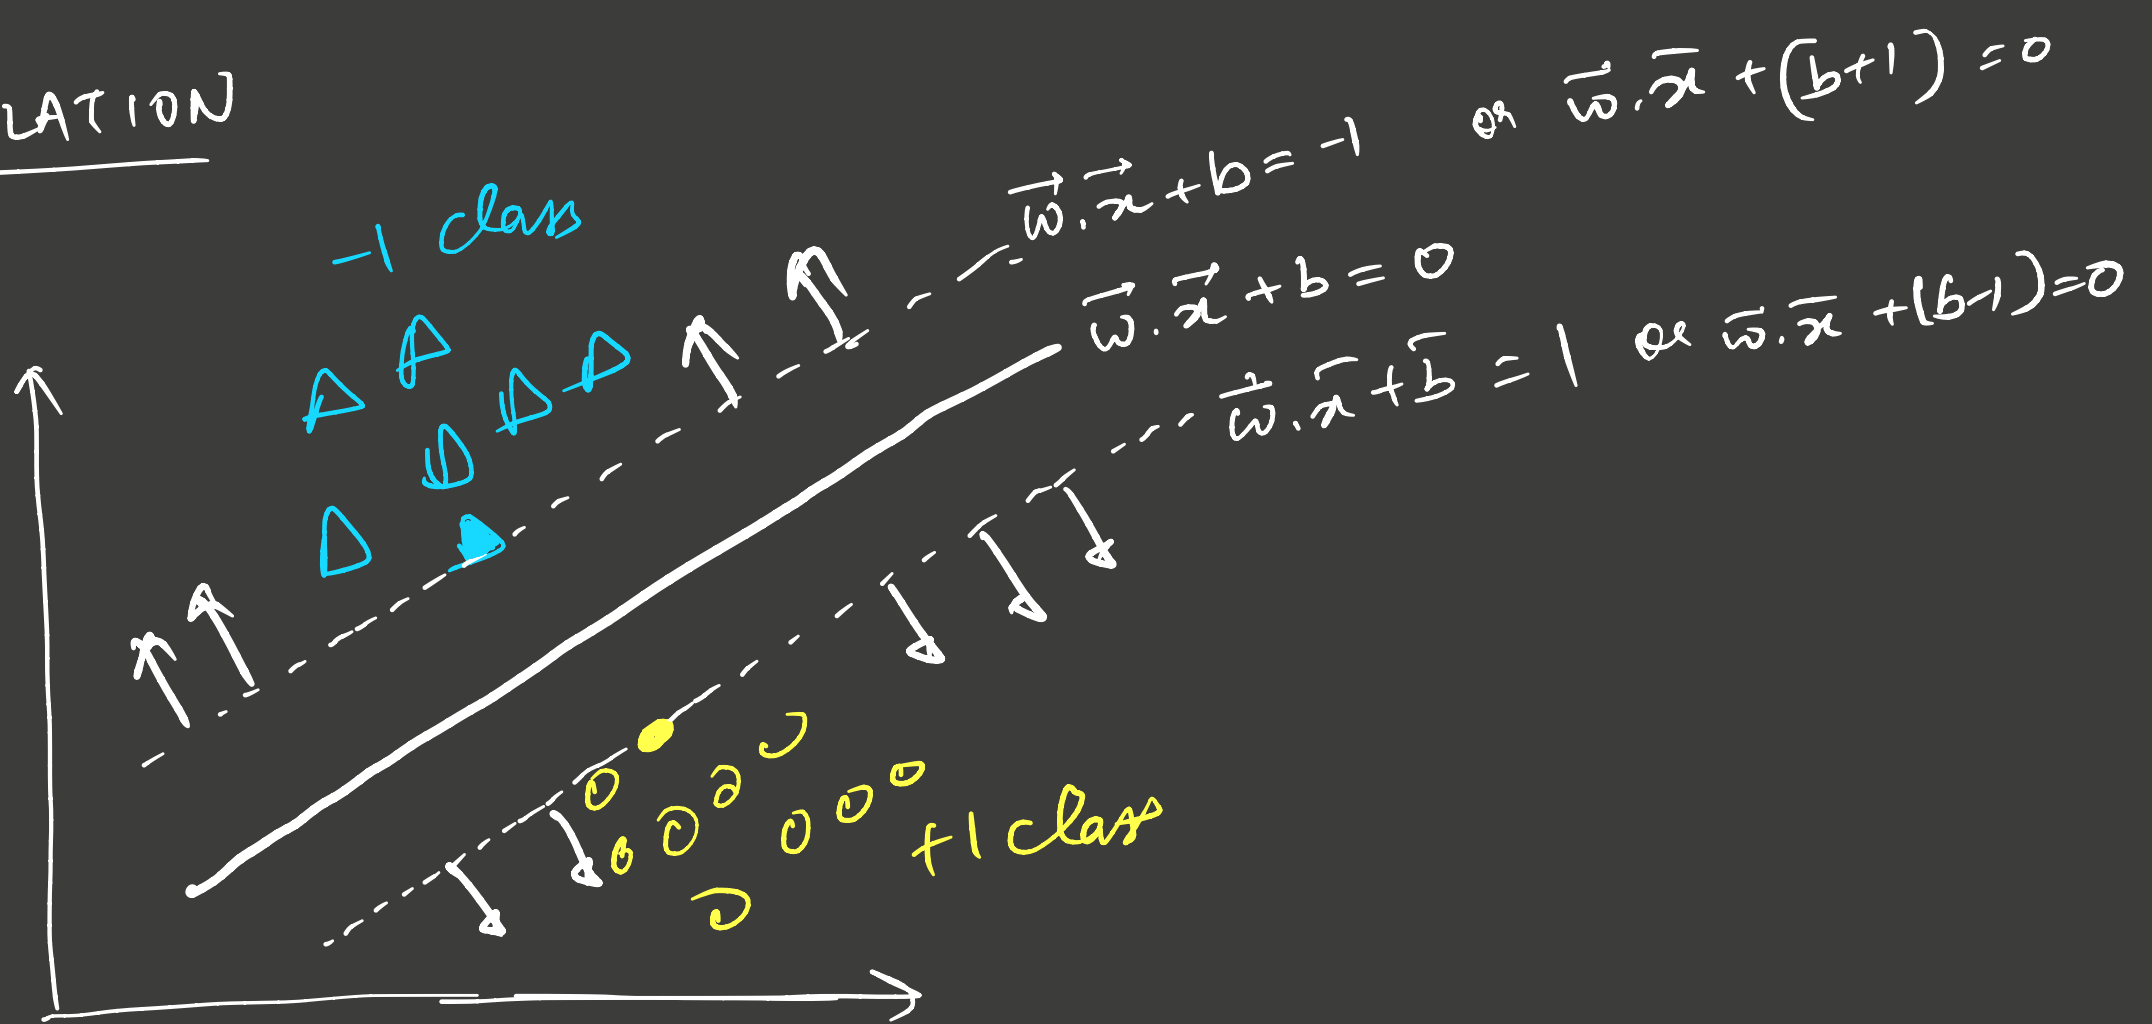 LATION
-1 class
w⃗.x⃗+b=-1 or w⃗.x̅+(b+1)=0
w⃗.x⃗+b=0
w⃗.x̅+b̅=1 or w̅.x̅+(b-1)=0
+1 class